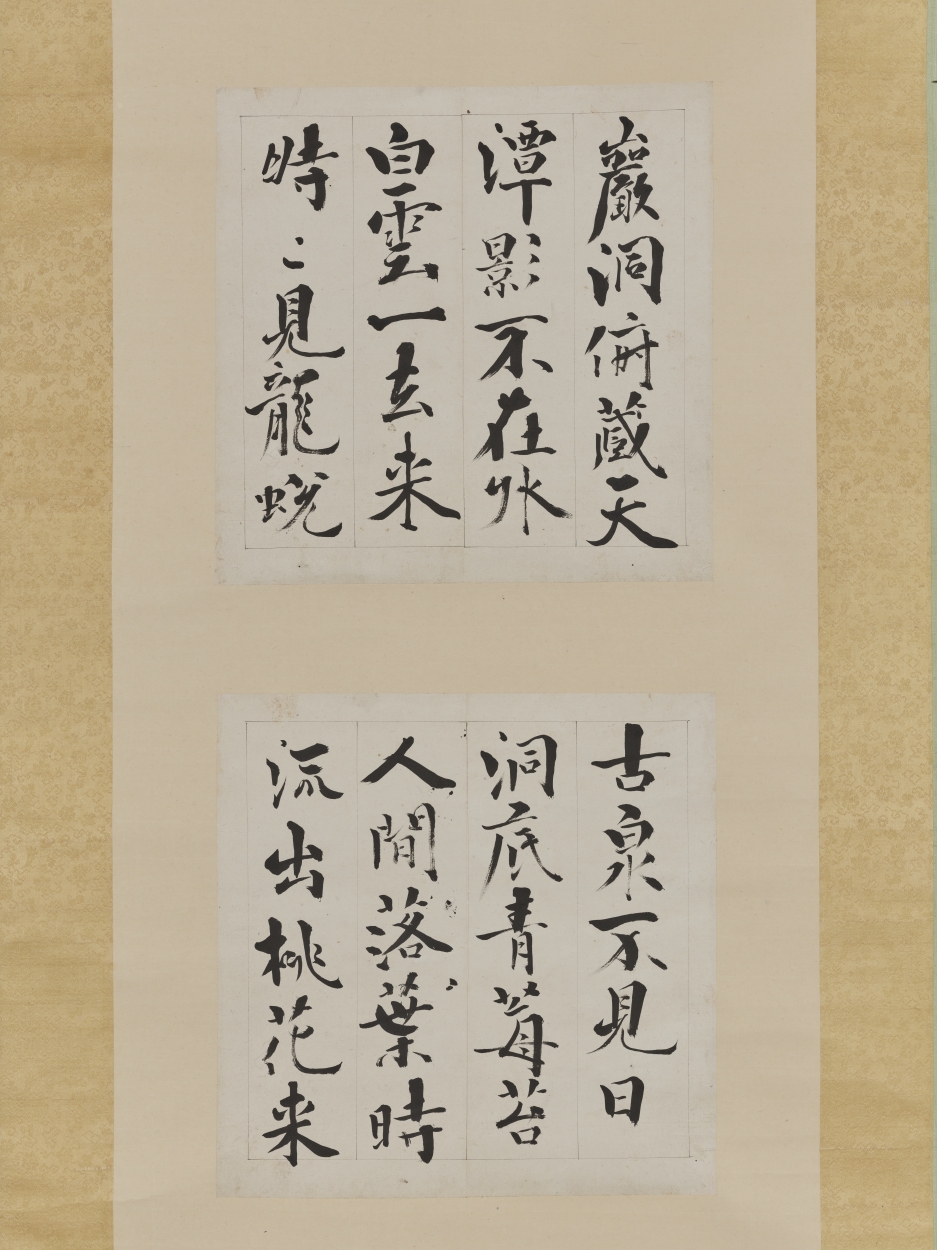 巖洞俯藏天
潭影不在水
白雲一去来
時〻見龍蛻
古泉不見日
洞底青莓苔
人間落葉時
流出桃花来